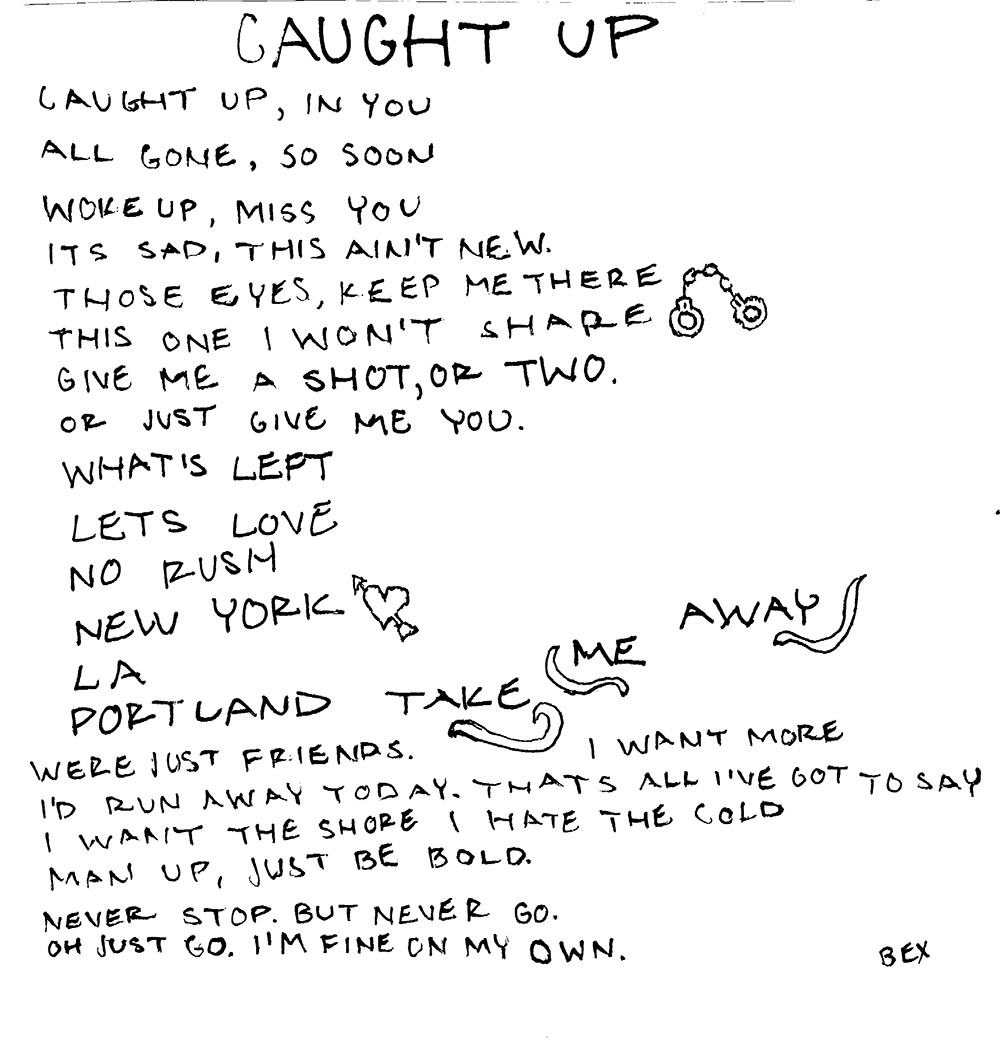 CAUGHT UP
CAUGHT UP, IN YOU
ALL GONE, SO SOON
WOKE UP, MISS YOU
ITS SAD, THIS AIN'T NEW.
THOSE EYES, KEEP ME THERE
THIS ONE I WON'T SHARE
GIVE ME A SHOT, OR TWO.
OR JUST GIVE ME YOU.
WHAT'S LEFT
LETS LOVE
NO RUSH
NEW YORK
LA
PORTLAND TAKE ME AWAY
WERE JUST FRIENDS. I WANT MORE
I'D RUN AWAY TODAY. THATS ALL I'VE GOT TO SAY
I WANT THE SHORE I HATE THE COLD
MAN UP, JUST BE BOLD.
NEVER STOP. BUT NEVER GO.
OH JUST GO. I'M FINE ON MY OWN.
BEX